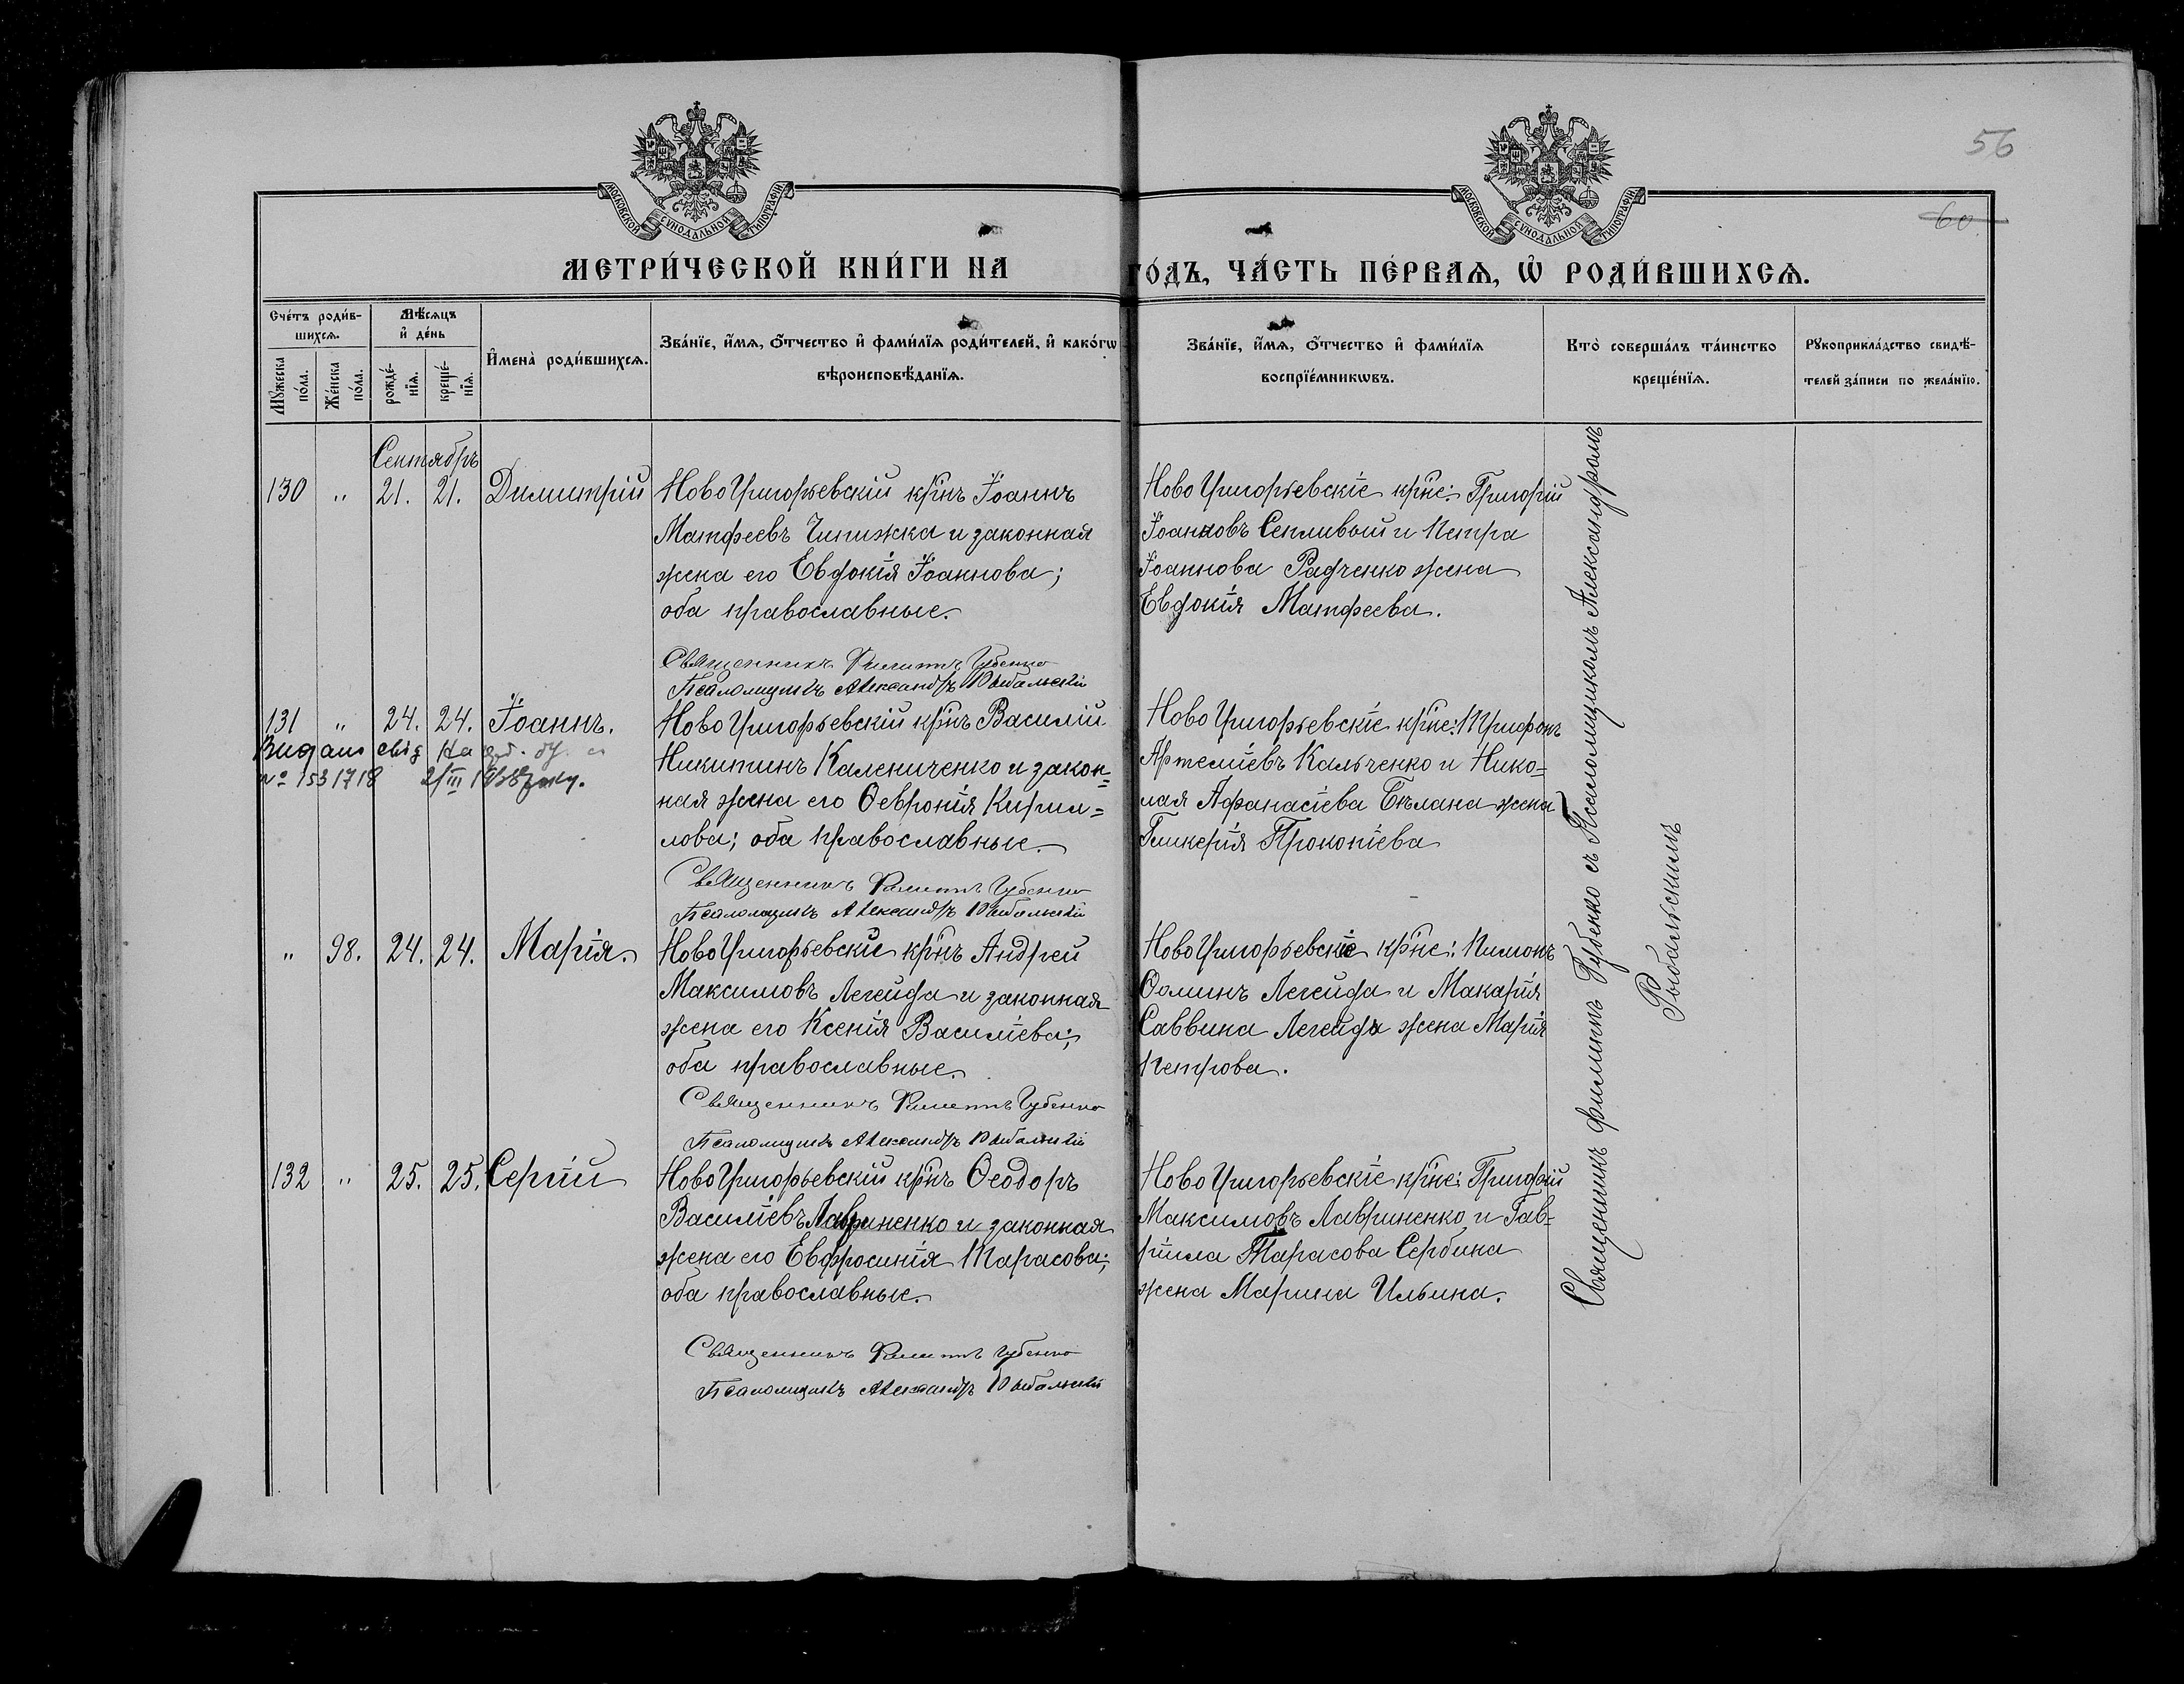 56
60
МОСКОВСКОЙ СУНОДАЛЬНОЙ ТИПОГРАФІИ
МОСКОВСКОЙ СУНОДАЛЬНОЙ ТИПОГРАФІИ
МЕТРИ́ЧЕСКОЙ КНИ́ГИ НА
ГО́ДЪ, ЧА́СТЬ ПЕ́РВАѦ, Ѡ҆ РОДИ́ВШИХСѦ.
Сче́тъ роди́в-
шихсѧ.
Мꙋ́жеска
по́ла.
Же́нска
по́ла.
Мѣ́сѧцъ
и҆ де́нь
рожде́-
нїѧ.
креще́-
нїѧ.
И҆мена̀ роди́вшихсѧ.
Зва́нїе, и҆́мѧ, ѻ҆́тчество и҆ фами́лїѧ роди́телей, и҆ како́гѡ
вѣроисповѣ́данїѧ.
Зва́нїе, и҆́мѧ, ѻ҆́тчество и҆ фами́лїѧ
воспрїе́мникѡвъ.
Кто̀ соверша́лъ та́инство
креще́нїѧ.
Рꙋкоприкла́дство свидѣ́-
телей за́писи по жела́нїю.
Сентябрь
130 " 21. 21. Димитрій
НовоГригорьевскій кр̃нъ Іоаннъ
Матѳеевъ Чипижка и законная
жена его Евдокія Іоаннова;
оба православные.
Священникъ Филиппъ Губенко
Псаломщикъ Александръ Рыбальскій
НовоГригорьевскіе кр̃не: Григорій
Іоанновъ Сепливый и Петра
Іоаннова Радченко жена
Евдокія Матѳеева.
131 " 24. 24. Іоаннъ.
Видано свід на
№ 1531718 2/III 1938 року.
НовоГригорьевскій кр̃нъ Василій
Никитинъ Калениченко и закон=
ная жена его Ѳевронія Кирил=
лова; оба православные.
Священникъ Филиппъ Губенко
Псаломщикъ Александръ Рыбальскій
НовоГригорьевскіе кр̃не: Трифонъ
Артеміевъ Кальченко и Нико=
лая Афанасіева Бѣлана жена
Гликерія Прокопіева
" 98. 24. 24. Марія.
НовоГригорьевскій кр̃нъ Андрей
Максимовъ Легейда и законная
жена его Ксенія Василіева;
оба православные.
Священникъ Филиппъ Губенко
Псаломщикъ Александръ Рыбальскій
НовоГригорьевскіе кр̃не: Пимонъ
Ѳоминъ Легейда и Макарія
Саввина Легейда жена Марія
Петрова.
132 " 25. 25. Сергій
НовоГригорьевскій кр̃нъ Ѳеодоръ
Василіевъ Лавриненко и законная
жена его Евфросинія Тарасова;
оба православные.
Священникъ Филиппъ Губенко
Псаломщикъ Александръ Рыбальскій
НовоГригорьевскіе кр̃не: Григорій
Максимовъ Лавриненко и Гав=
ріила Тарасова Сербина
жена Марина Ильина.
Священникъ Филиппъ Губенко съ Псаломщикомъ Александромъ
Рыбальскимъ